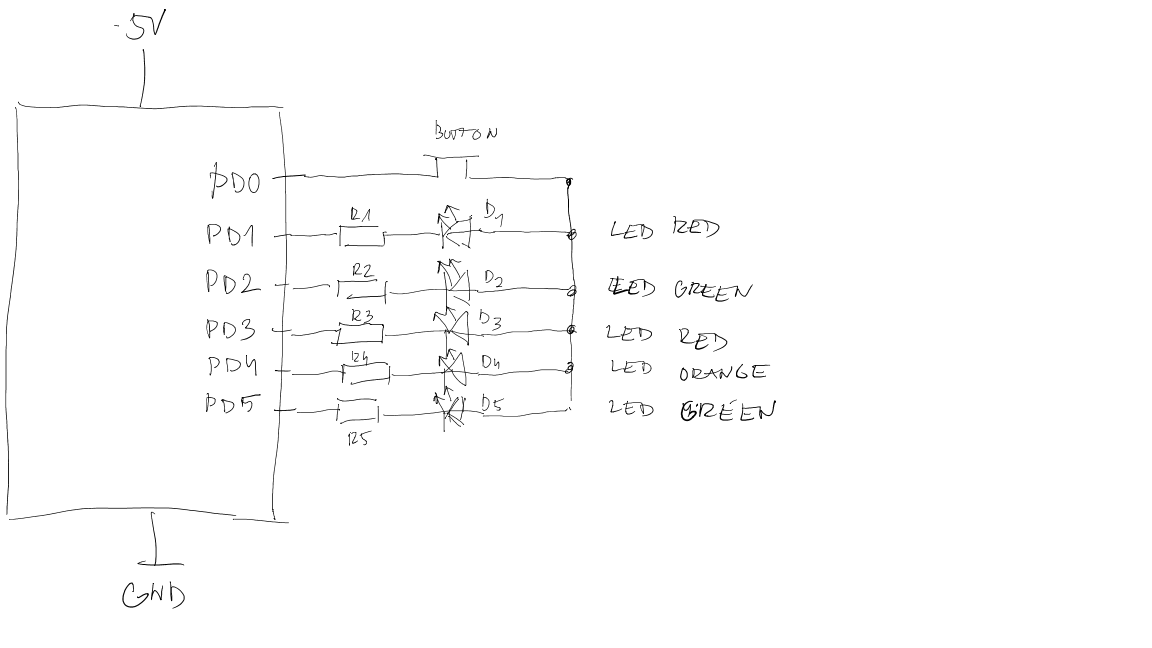 -5V
BUTTON
PD0
PD1 R1 D1 LED RED
PD2 R2 D2 LED GREEN
PD3 R3 D3 LED RED
PD4 R4 D4 LED ORANGE
PD5 R5 D5 LED GREEN
GND